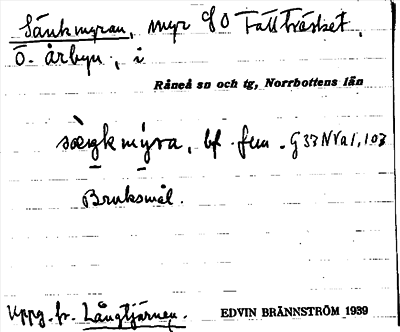 Sänkmyran, myr SO Tällträsket,
Ö. årbyn, i
Råneå sn och tg, Norrbottens län
myra, bf. fem.
Bruksmål.
Uppg. fr. Långtjärnen.
EDVIN BRÄNNSTRÖM 1939